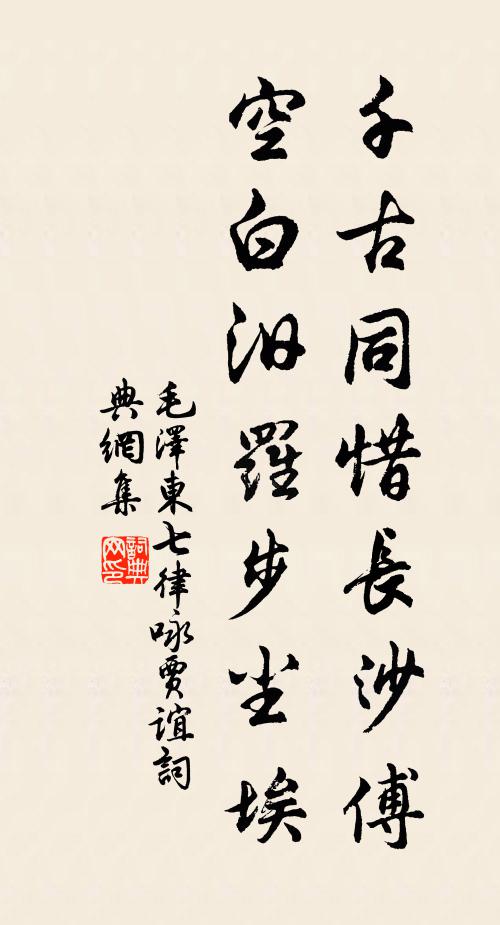 千古同惜長沙傅
空白汨羅步尘埃
毛澤東七律咏賈誼詞
典網集
詞典网印